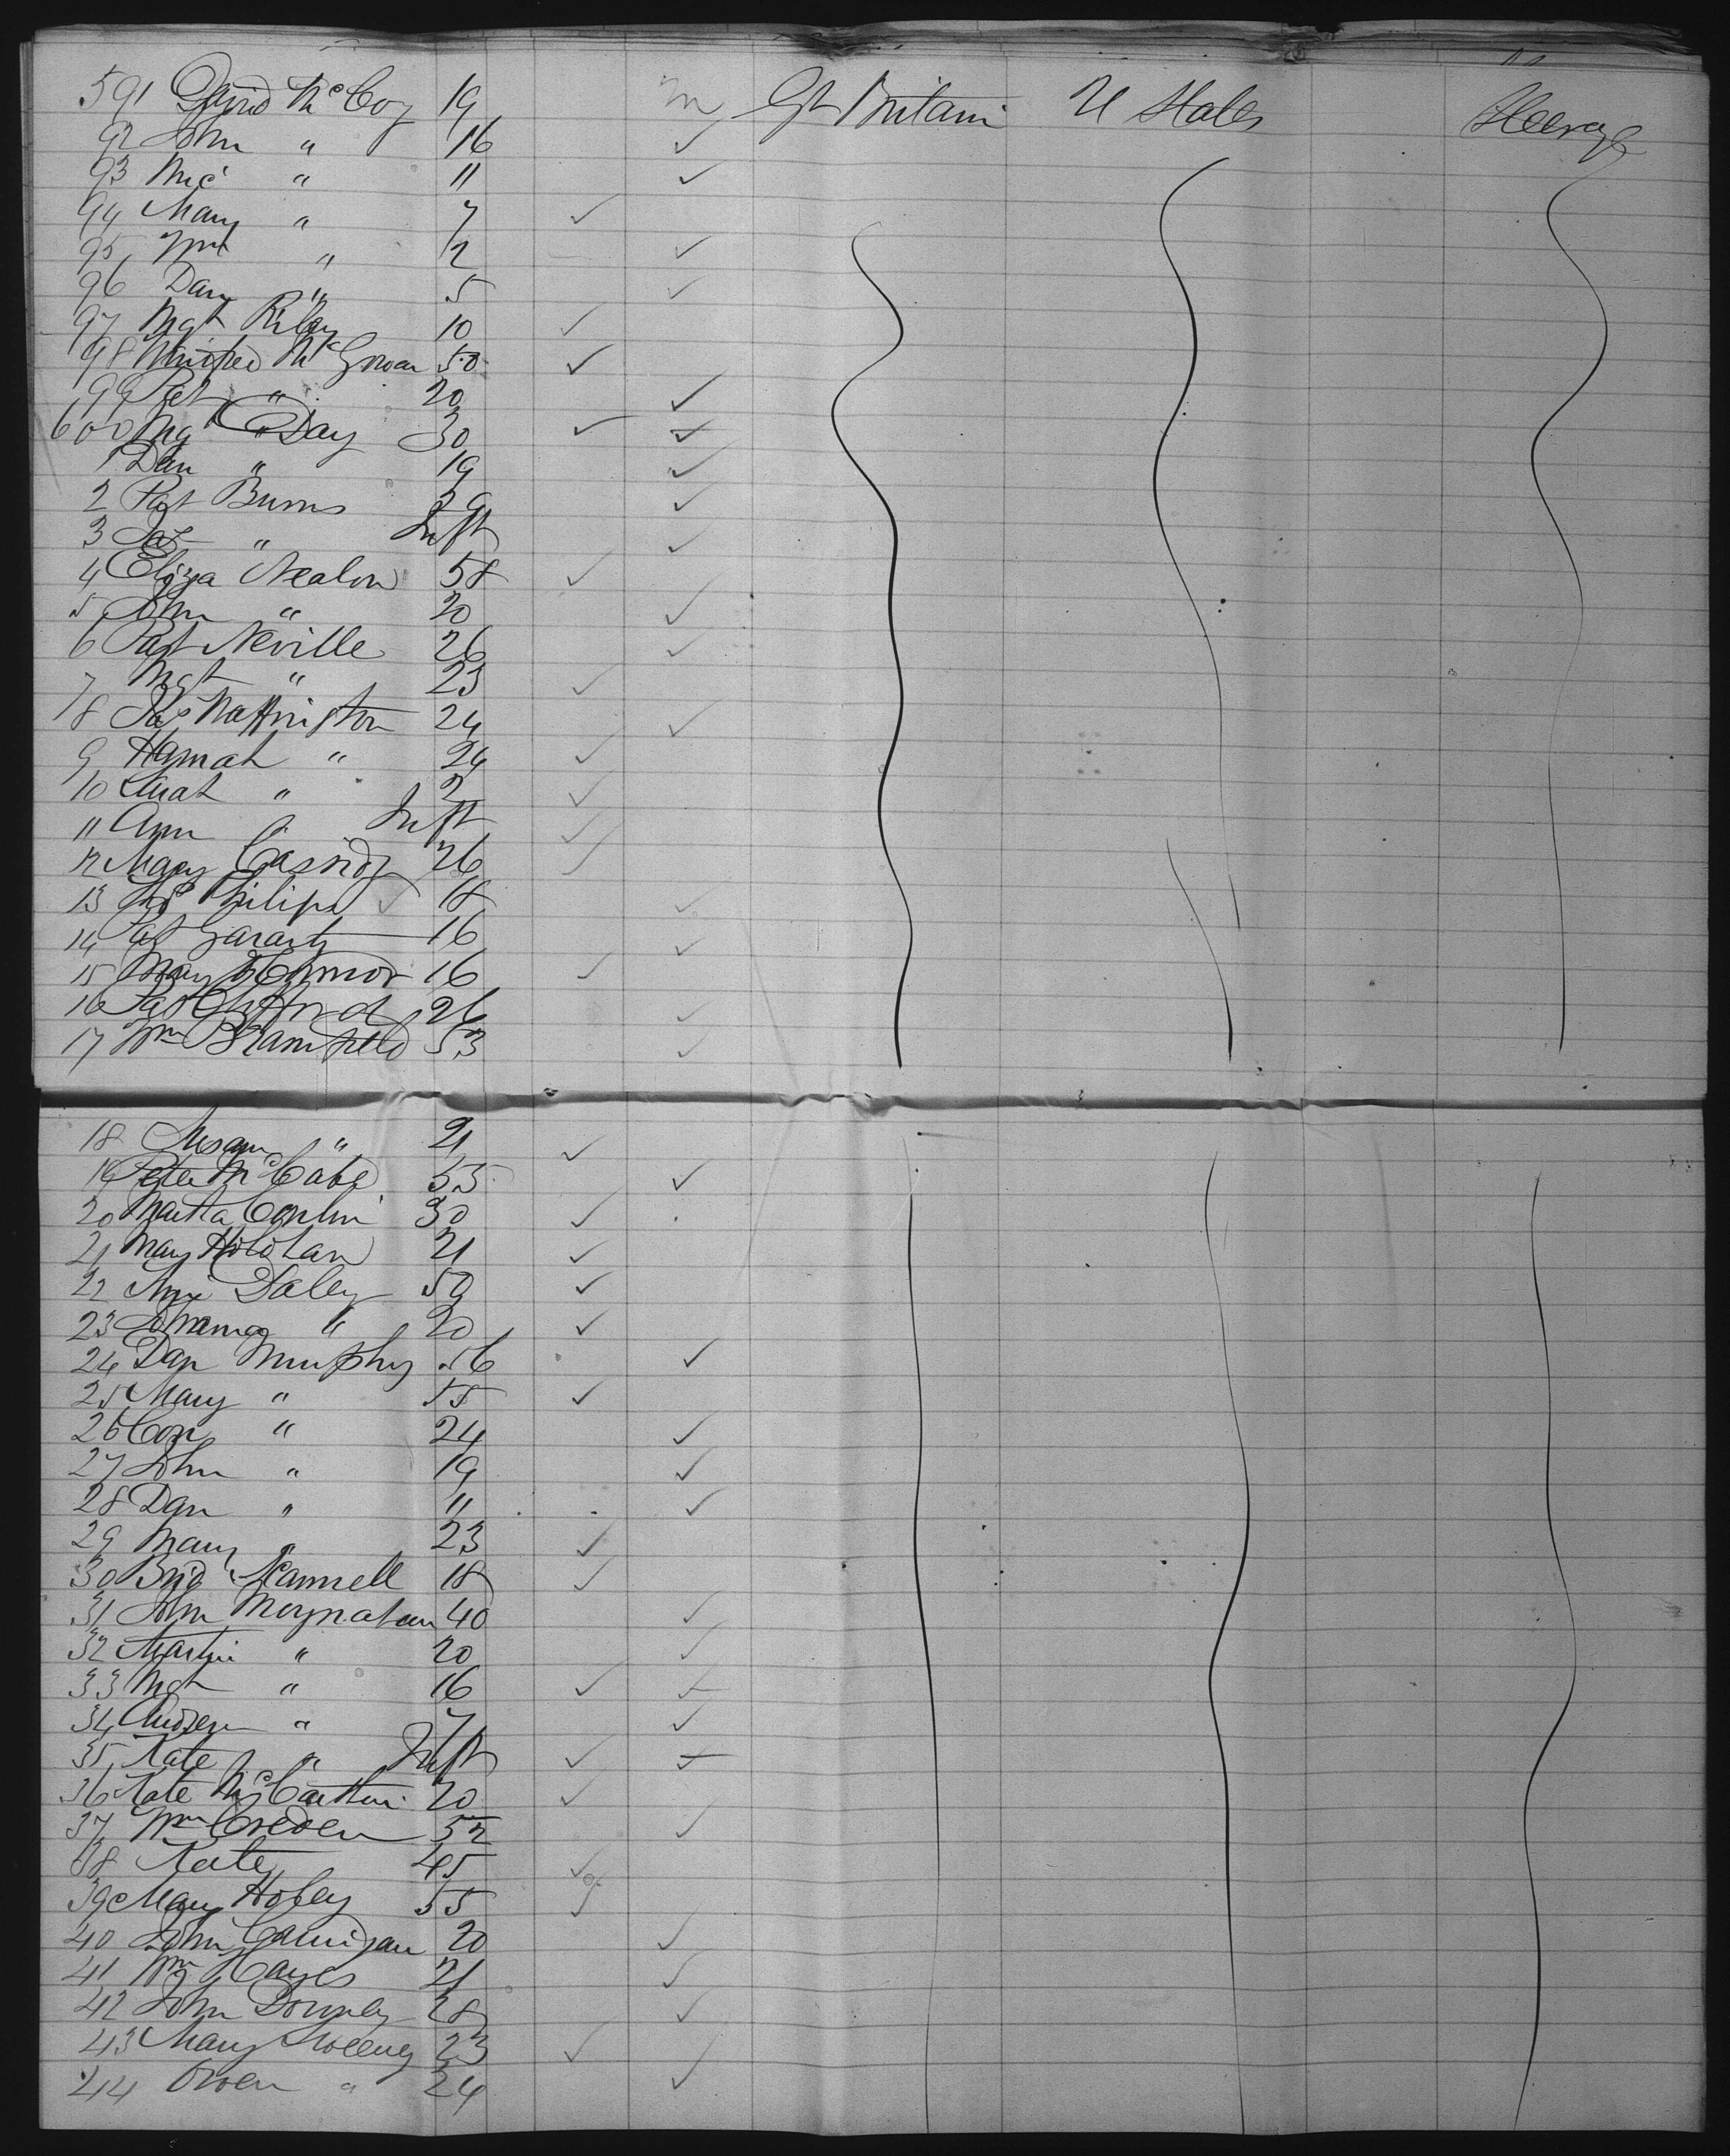 591 David McCoy 19 m Gt Britain U States Steerage
92 John " 16 ✓
93 Mic " 11 ✓
94 Mary " 7 ✓
95 Wm " 2 ✓
96 Dan " 5 ✓
97 Mgt Riley 10 ✓
98 Winifred McGowan 50 ✓
99 Pat " 20 ✓
600 Mgt Day 30 ✓ ✓
1 Dan " 19 ✓
2 Pat Burns 29 ✓
3 " Inft ✓
4 Eliza Nealon 58 ✓
5 John " 20 ✓
6 Pat Neville 26 ✓
7 Mgt " 23 ✓
8 24 ✓
9 Hannah " 24 ✓
10 Sarah " 2 ✓
11 Ann " Inft ✓
12 Mary Cassidy 26 ✓
13 Philips 18 ✓
14 Pat Gararty 16 ✓
15 Mary O'Connor 16 ✓
16 Pat Clifford 26 ✓
17 Wm Bramfield 53 ✓
18 Susan " 21 ✓
19 Peter McCabe 55 ✓
20 Martha Conlin 30 ✓
21 Mary Holohan 21 ✓
22 Daley 50 ✓
23 Johanna " 20 ✓
24 Dan Murphy 56 ✓
25 Mary " 55 ✓
26 Con " 24 ✓
27 John " 19 ✓
28 Dan " 11 ✓
29 Mary " 23 ✓
30 Brid Scannell 18 ✓
31 John Moynahan 40 ✓
32 Martin " 20 ✓
33 Mgt " 16 ✓ ✓
34 Andrew " 7 ✓
35 Kate " Inft ✓ ✓
36 Kate McCarthy 20 ✓
37 Wm Creden 52 ✓
38 Kate 45 ✓
39 Mary Hobey 55 ✓
40 John Gannigan 20 ✓
41 Wm Hayes 21 ✓
42 John Downey 28 ✓
43 Mary Sweeney 23 ✓
44 Owen " 24 ✓